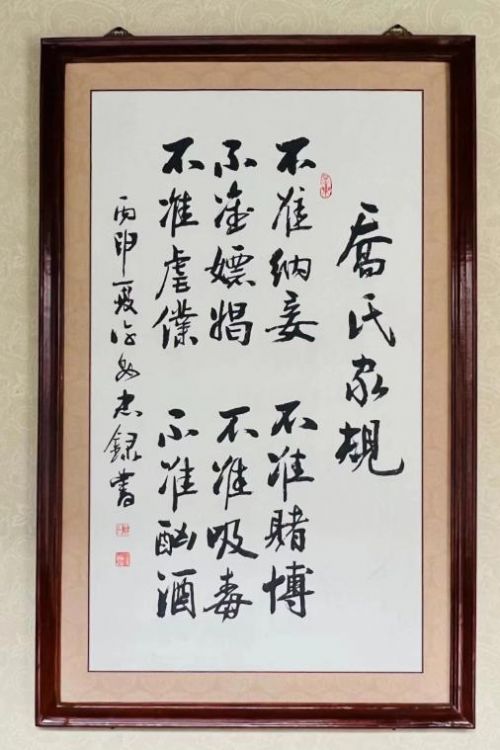 喬氏家規
不准納妾 不准賭博
不准嫖娼 不准吸毒
不准虐僕 不准酗酒
丙申夏 忠錄書